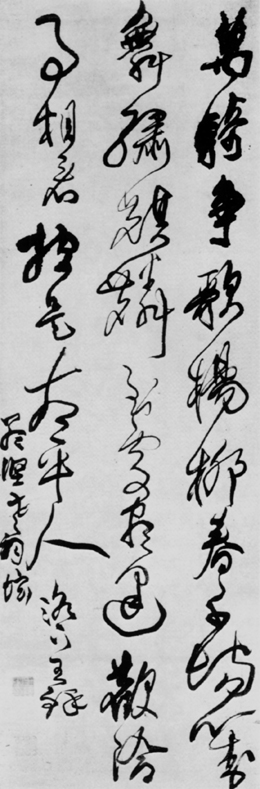 萬騎爭歌楊柳春千場對
舞繡麒麟到處盡逢歡洽
事相看總是太平人
洛下王鐸